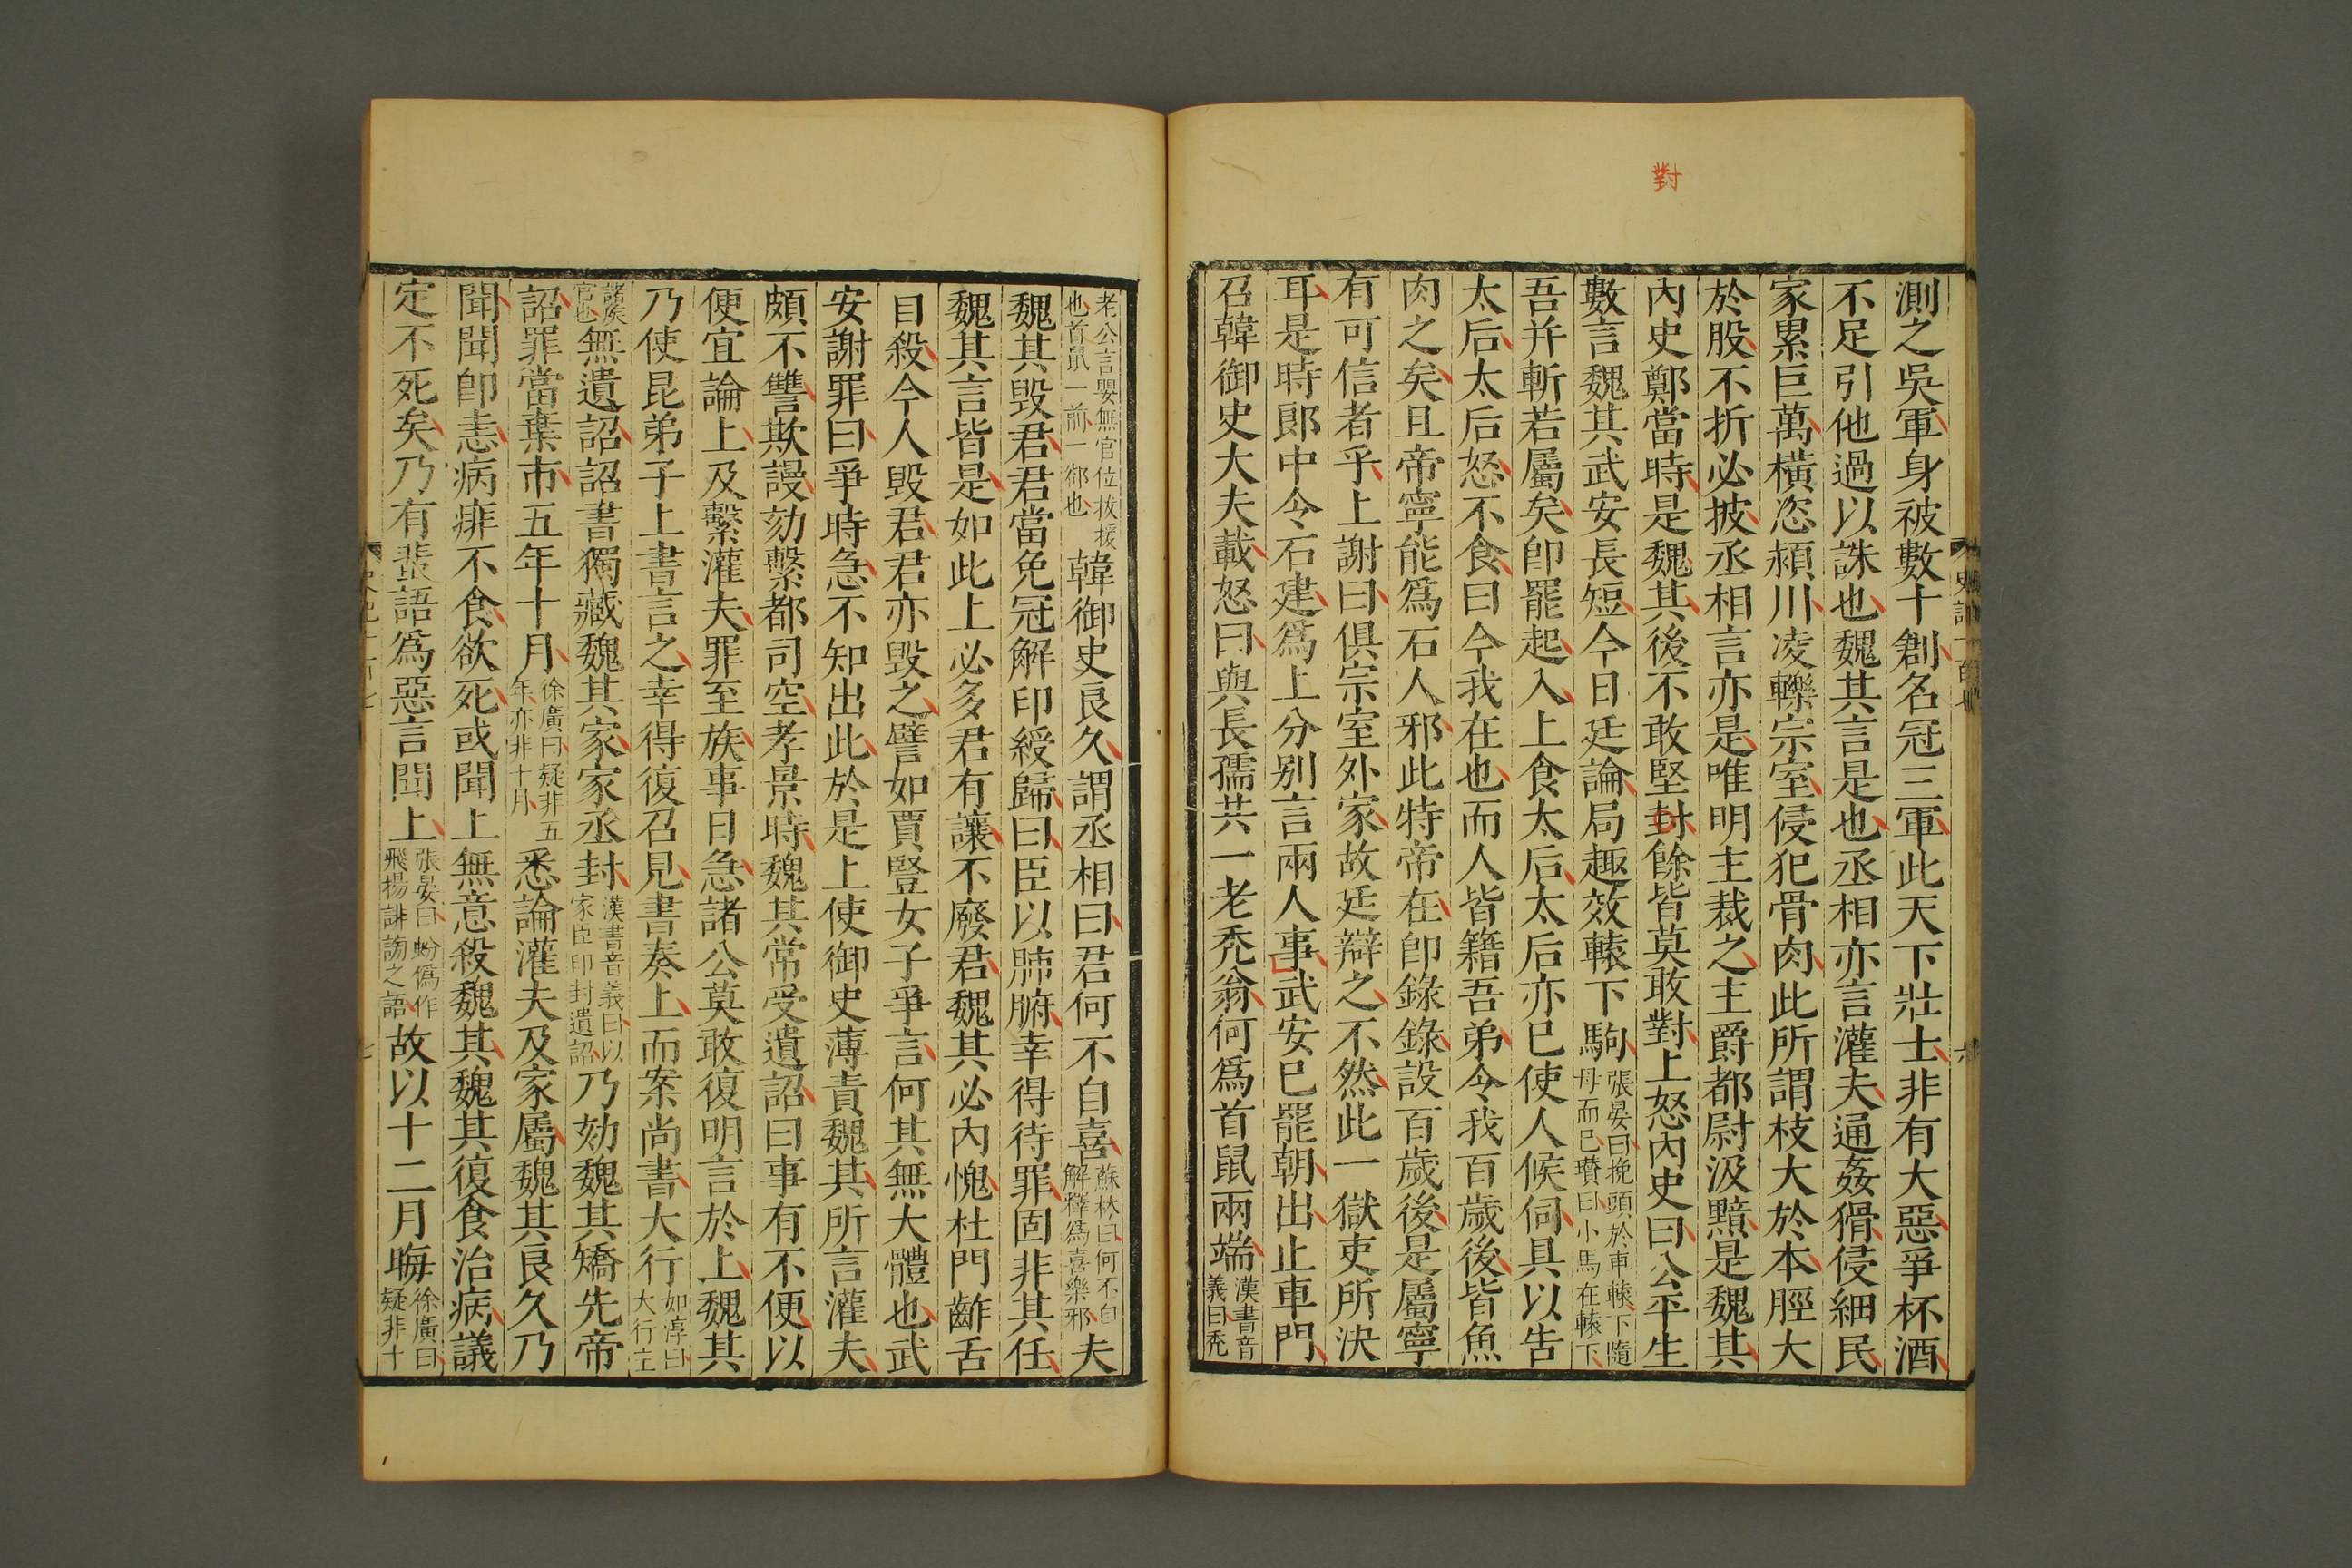 對
測之吳軍身被數十創名冠三軍此天下壯士非有大惡爭杯酒
不足引他過以誅也魏其言是也丞相亦言灌夫通姦猾侵細民
家累巨萬橫恣潁川凌轢宗室侵犯骨肉此所謂枝大於本脛大
於股不折必披丞相言亦是唯明主裁之主爵都尉汲黯是魏其
內史鄭當時是魏其後不敢堅封餘皆莫敢對上怒內史曰公平生
數言魏其武安長短今日廷論局趣效轅下駒張晏曰挽頭於車轅下隨母而已瓚曰小馬在轅下
吾并斬若屬矣卽罷起入上食太后太后亦已使人候伺具以告
太后太后怒不食曰今我在也而人皆籍吾弟令我百歲後皆魚
肉之矣且帝寧能爲石人邪此特帝在卽錄錄設百歲後是屬寧
有可信者乎上謝曰俱宗室外家故廷辯之不然此一獄吏所決
耳是時郎中令石建爲上分别言兩人事武安已罷朝出止車門
召韓御史大夫載怒曰與長孺共一老禿翁何爲首鼠兩端漢書音義曰禿
老公言嬰無官位扳援也首鼠一前一郤也韓御史良久謂丞相曰君何不自喜蘇林曰何不自解釋爲喜樂邪夫
魏其毀君君當免冠解印綬歸曰臣以肺腑幸得待罪固非其任
魏其言皆是如此上必多君有讓不廢君魏其必內愧杜門齰舌
自殺今人毀君君亦毀之譬如賈豎女子爭言何其無大體也武
安謝罪曰爭時急不知出此於是上使御史薄責魏其所言灌夫
頗不讐欺謾劾繫都司空孝景時魏其常受遺詔曰事有不便以
便宜論上及繫灌夫罪至族事日急諸公莫敢復明言於上魏其
乃使昆弟子上書言之幸得復召見書奏上而案尚書大行如淳曰大行主
諸族官也無遺詔詔書獨藏魏其家家丞封漢書音義曰以家臣印封遺詔乃劾魏其矯先帝
詔罪當棄市五年十月徐廣曰疑非五年亦非十月悉論灌夫及家屬魏其良久乃
聞聞卽恚病痱不食欲死或聞上無意殺魏其魏其復食治病議
定不死矣乃有蜚語爲惡言聞上張晏曰蚡僞作飛揚誹謗之語故以十二月晦徐廣曰疑非十